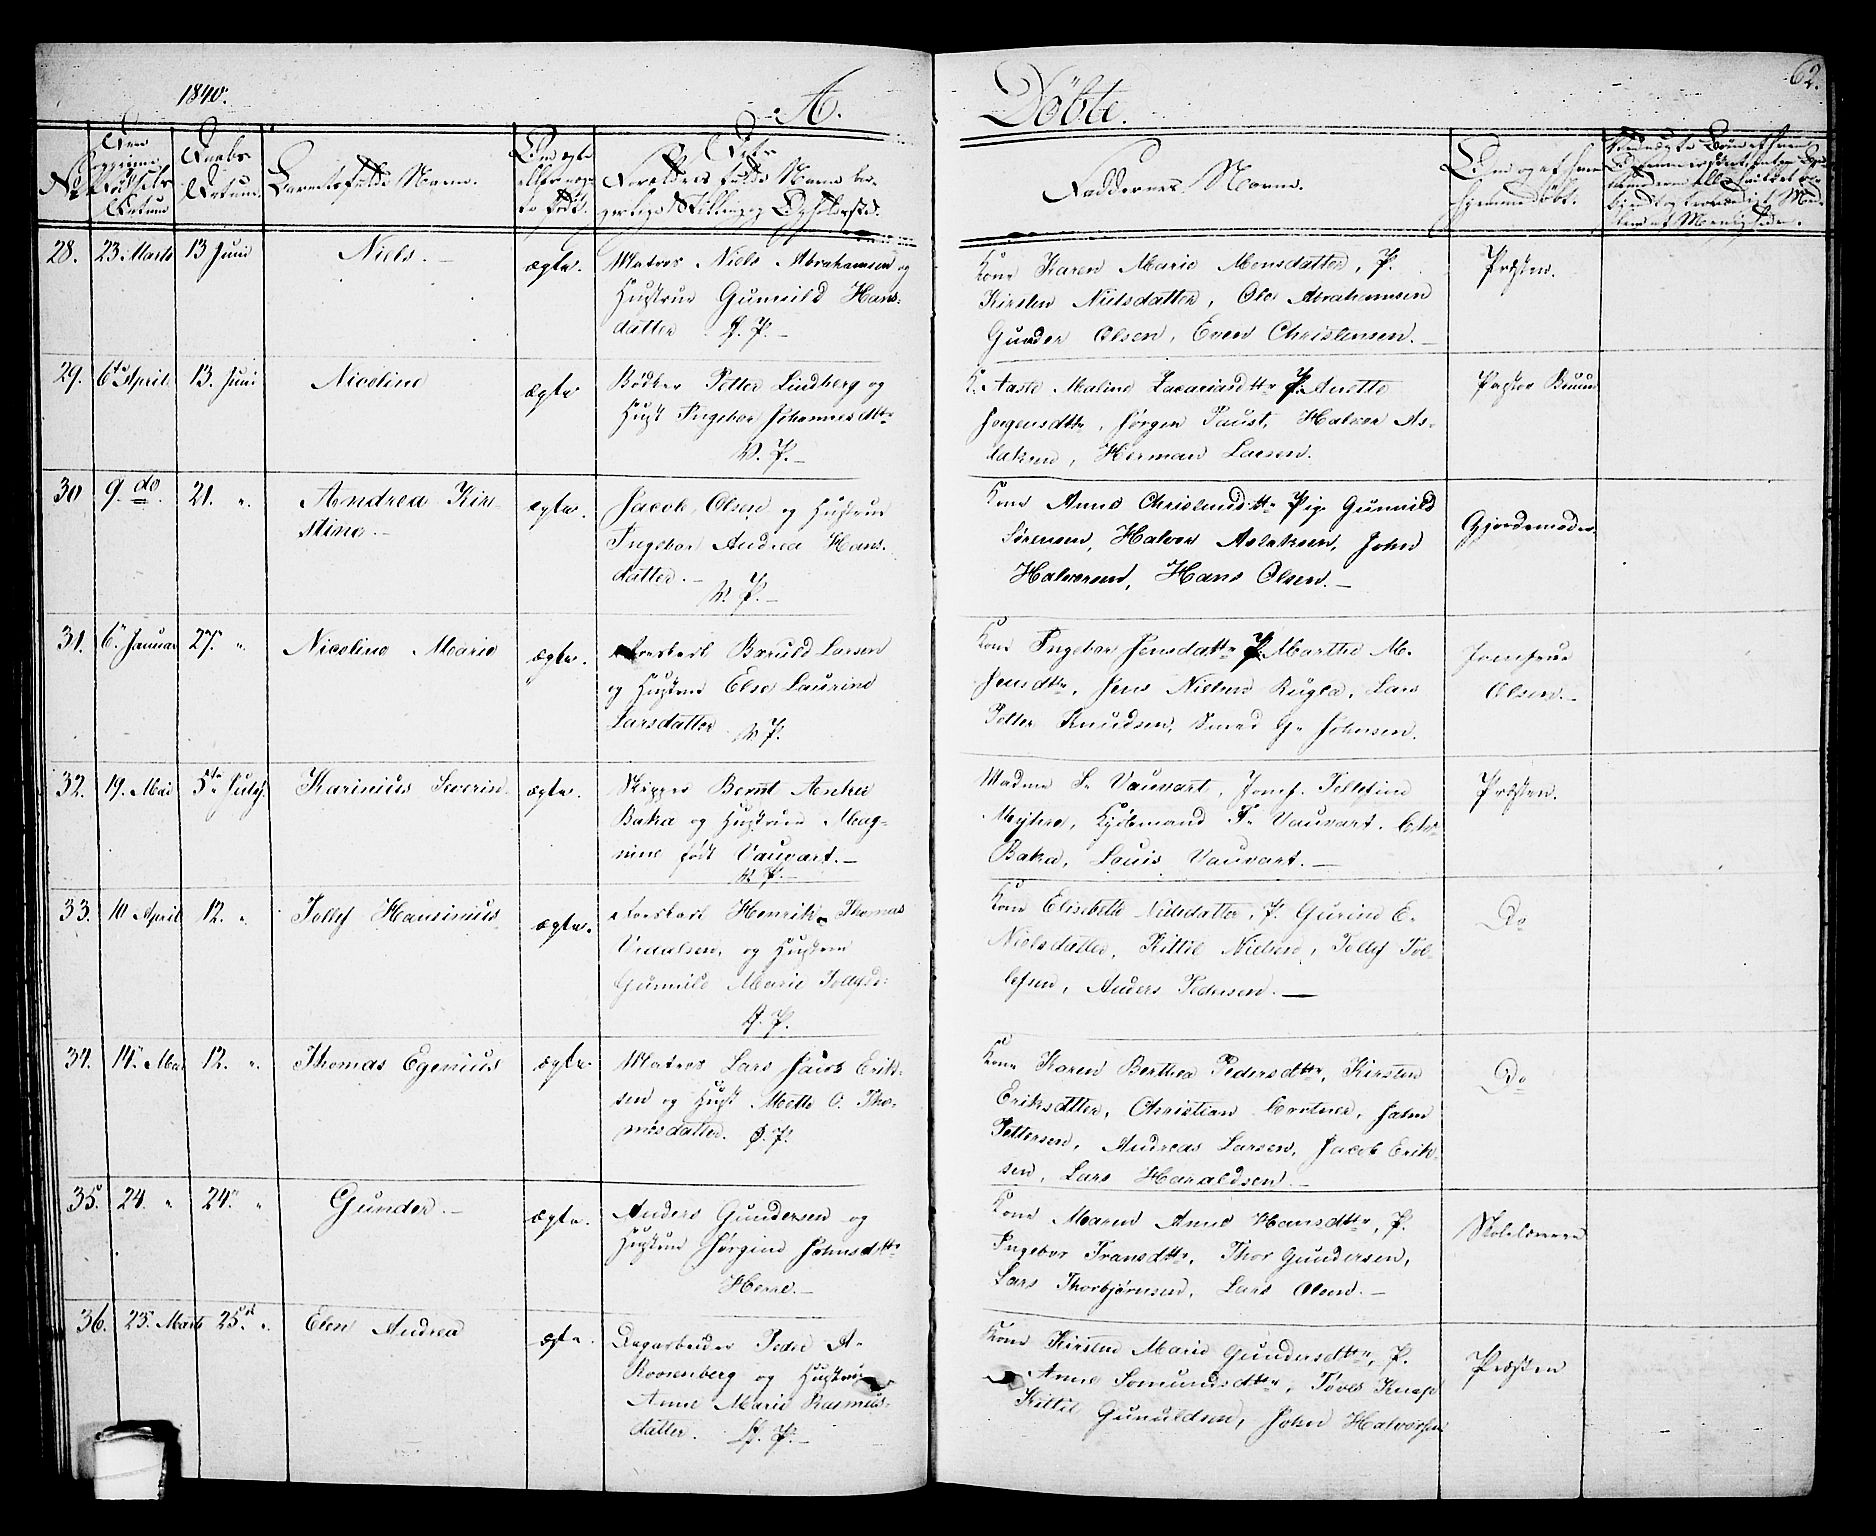 1840.
A.
Döbte.
62.
No
Den opgivne Födsels Datum
Daabs Datum
Barnets fulde Navn.
Om ægte eller uægte födt.
Forældres fulde Navne bor-
gerlige Stilling og Opholdssted.
Faddernes Navne.
Om og af hvem
hjemmedöbt.
28.
23 Marts
13 Juni
Niels. —
ægte.
Matros Niels Abrahamsen og
Hustrue Gunnild Hans-
datter
P. —
Kone Karen Marie Monsdatter, P.
Kirsten Nielsdatter, Ole Abrahamsen
Gunder Olsen, Even Christensen. —
Præsten.
29.
6te April
13. Juni
Nicoline
ægte
Bödker Petter Lindberg og
Hust Ingebor Johannesdttr
V. P. —
K. Aasle Maline Zacariasdttr P. Anette
Jorgensdttr, Jörgen Paust, Halvor As-
laksen, Herman Larsen.
Pastor Bruun
30
9. do
21. "
Andrea Kir-
stine. —
ægte.
Jacob Olsen og Hustrue
Ingebor Andrea Hans-
datter. —
V. P. —
Kone Anne Christensdttr Pige Gunnild
Sörensen, Halvor Aslaksen, John
Halvorsen, Hans Olsen. —
Gjordemoder
31.
6. Januar
27. "
Nicoline Marie
ægte.
Larsen
og Hustrue Else Laurine
Larsdatter
V. P.
Kone Ingebor Jensdattr P. Marthe M.
Jensdttr, Jens Nielsen Rugla, Lars
Petter Knudsen, Smed G. Johnsen.
Jomfrue
Olsen. —
32.
19. Mai
5te July
Karinius Severin.
ægte.
Skipper Bernt Anker
Baka og Hustrue Mag-
nine födt Vauvart. —
V. P. —
Madme L. Vauvart, Jomf. Tollefine
Myhre, Kjöbmand T. Vauvart.
Baka, Louis Vauvart. —
Præsten.
33.
10 April
12. "
Tollef Hansinius
ægte.
Henrik Thomas
og Hustrue
Gunnild Marie Tollefsd:
P.
Kone Elisabeth Nielsdatter, P. Gurine E.
Nielsdatter, Kittil Nielsen, Tollef Tol-
lefsen, Anders Pedersen. —
Do
34.
14. Mai
12. "
Thomas Egenius
ægte.
Matros Lars Jacob Erik-
sen og Hust Mette O. Tho-
masdatter. P.
Kone Karen Berthea Pedersdttr, Kirsten
Eriksdtter, Christian Cortner, John
Pettersen, Andreas Larsen, Jacob Erik-
sen, Lars Haraldsen. —
Do
35.
24. "
24. "
Gunder. —
ægte.
Anders Gundersen og
Hustrue Jörgine Johnsdttr
Herre. —
Kone Maren Anne Hansdttr, P.
Ingebor Fransdttr, Thor Gundersen,
Lars Thorbjörnsen, Lars Olsen. —
Skolelæreren
36.
25. Marts
25. "
Elen Andrea
ægte.
Dagarbeider Peder A.
Roosenberg og Hustrue
Anne Marie Rasmus-
datter. P. —
Kone Kirsten Marie Gundersdttr, P.
Anne
Kittil Gunuldsen, John Halvorsen
Præsten